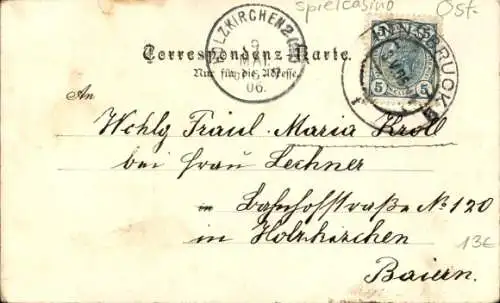 spielcasino Öst.
HOLZKIRCHEN 2
3
MAI
06.
INNSBRUCK
5 5
Correspondenz-Karte.
Nur für die Adresse.
An
Wohlg Fräul. Maria Kroll
bei frau Lechner
in Bahnhofstraße No 120
in Holzkirchen
13€
Baiern.